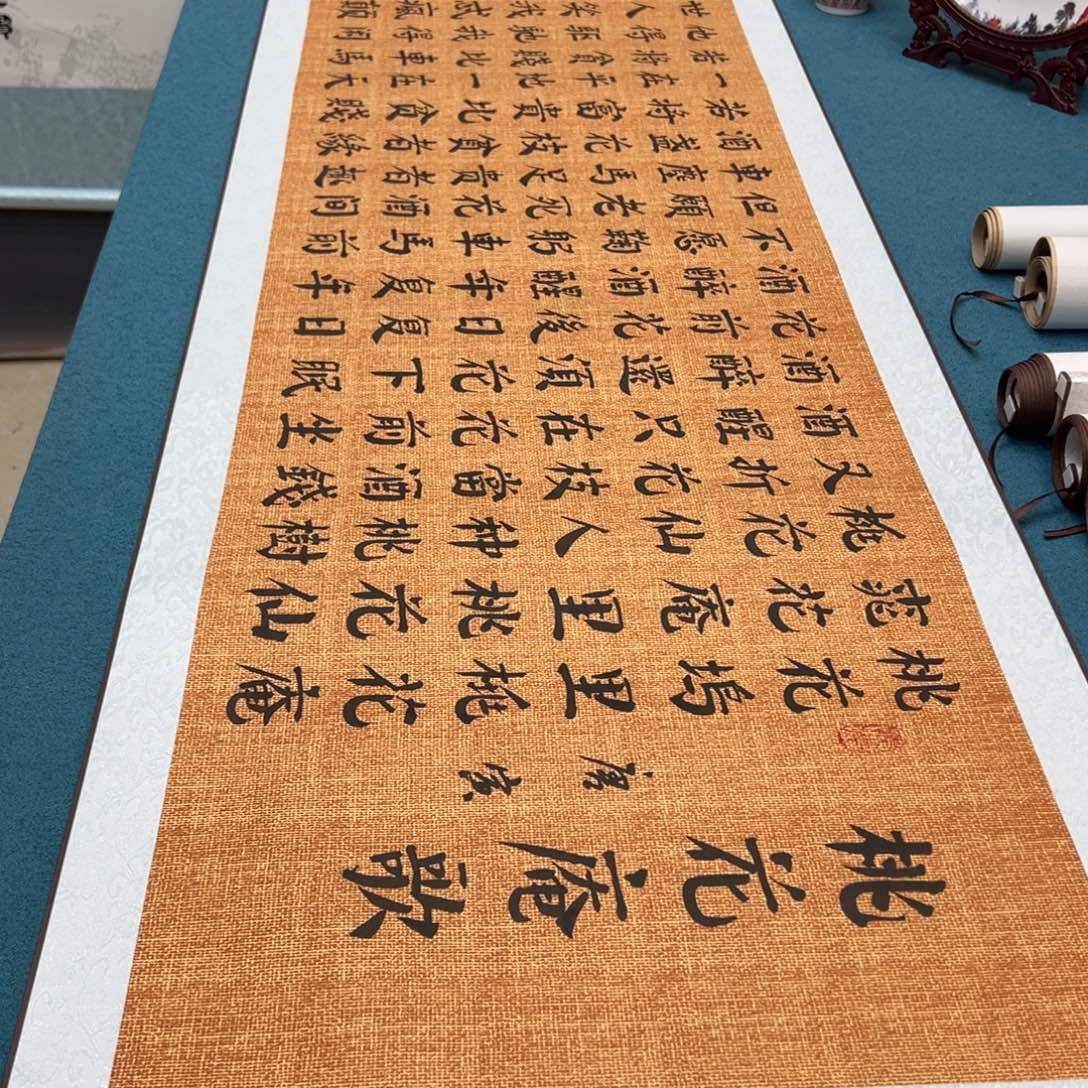 桃花庵歌
唐寅
桃花塢里桃花庵
花庵里桃花仙
桃花仙人种桃樹
又折花枝當酒錢
酒醒只在花前坐
酒醉還須花下眠
花前花後日复日
酒醉酒醒年复年
不愿鞠躬車馬前
但願老死花酒間
車塵馬足貴者趣
酒盞花枝貧者緣
若將富貴比貧賤
一在平地一在天
若將貧賤比車馬
他得驅馳我得間
世人笑我試瘋顛